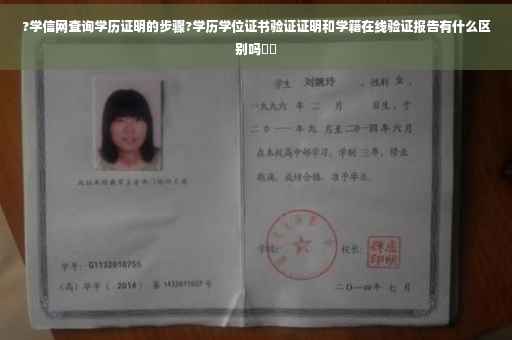 ?学信网查询学历证明的步骤?学历学位证书验证证明和学籍在线验证报告有什么区
别吗□□
学生 刘婉玲 ，性别 女 ，
一九九六 年 二 月 日生，于
二〇一一 年 九 月至 二〇一四 年 六 月
在本校高中部学习，学制 三 年，修业
期满，成绩合格，准予毕业。
学校： 校长：
学号： G1132010755
（高）毕字（ 2014 ）第 1432011007 号
二〇一四年 七 月